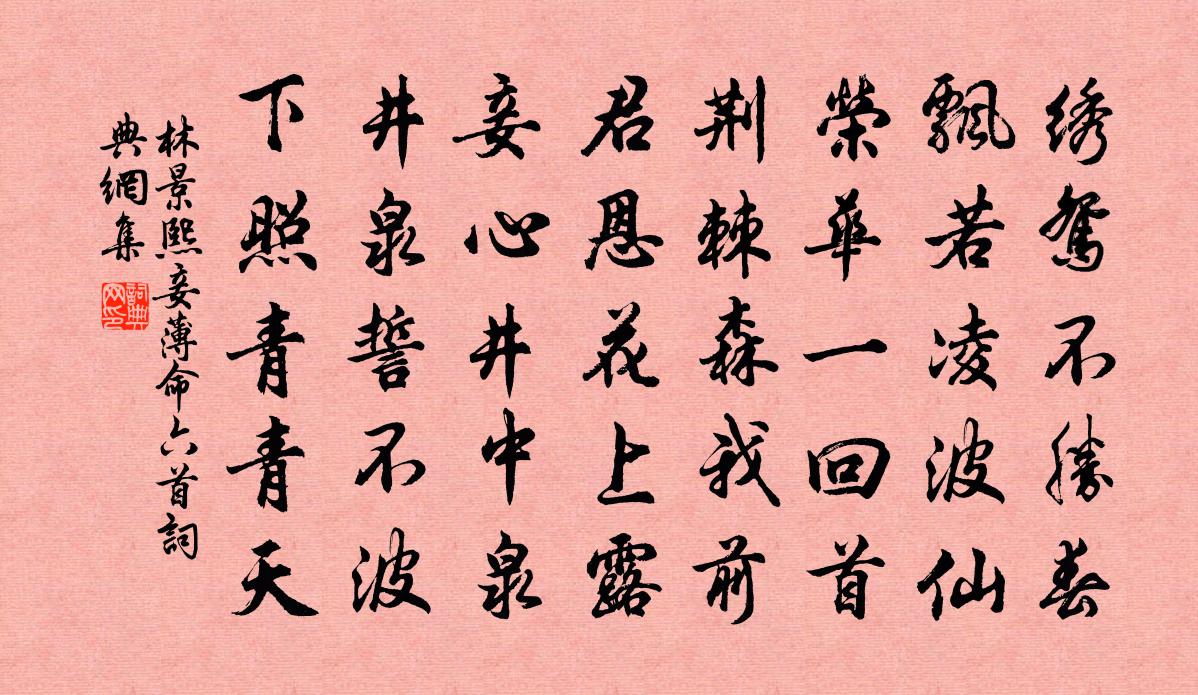 绣鸳不勝春
飄若凌波仙
榮華一回首
荆棘森我前
君恩花上露
妾心井中泉
井泉誓不波
下照青青天
林景熙妾薄命六首詞
典網集
詞典网印